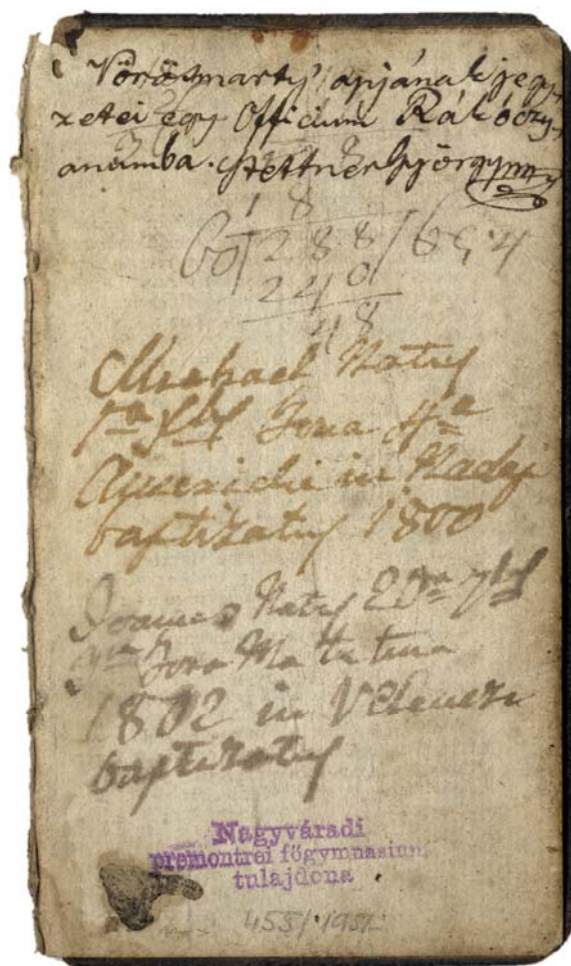 Vörösmarty apjának jegy-
zetei egy Officium Rákóczy-
anumba. Stettner György
18
60 288
240
48
Michael Natus
1ª Xbris hora 4ª
in Nadap
baptizatus 1800
Joannes Natus 7bris
hora Matutina
1802 in Velencze
baptizatus
Nagyváradi
premontrei főgymnasium
tulajdona
455/1952